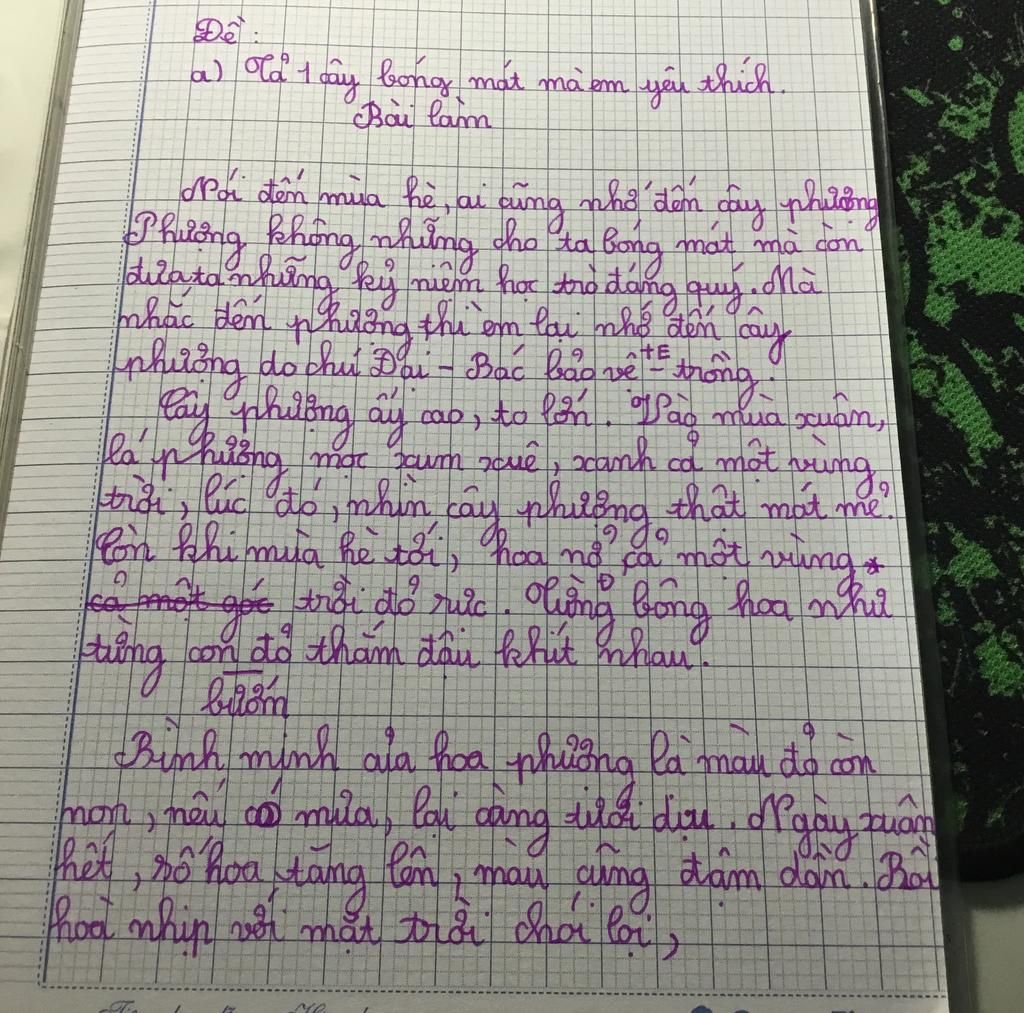 Đề:
a) Tả 1 cây bóng mát mà em yêu thích.
Bài làm
Nói đến mùa hè, ai cũng nhớ đến cây phượng
Phượng không những cho ta bóng mát mà còn
đưa ta những kỷ niệm học trò đáng quý. Mà
nhắc đến phượng thì em lại nhớ đến cây
phượng do chú Đại - Bác bảo vệ - trồng.
+E
Cây phượng ấy cao, to lớn. Vào mùa xuân,
lá phượng mọc xum xuê, xanh cả một vùng
trời, lúc đó, nhìn cây phượng thật mát mẻ.
Còn khi mùa hè tới, hoa nở cả một vùng *
cả một góc trời đỏ rực. Từng bông hoa như
từng con đỏ thắm đậu khít nhau.
bướm
Bình minh của hoa phượng là màu đỏ còn
non, nếu có mưa, lại càng tươi dịu. Ngày xuân
hết, số hoa tăng lên, màu cũng đậm dần. Rồi
hoà nhịp với mặt trời chói lọi,